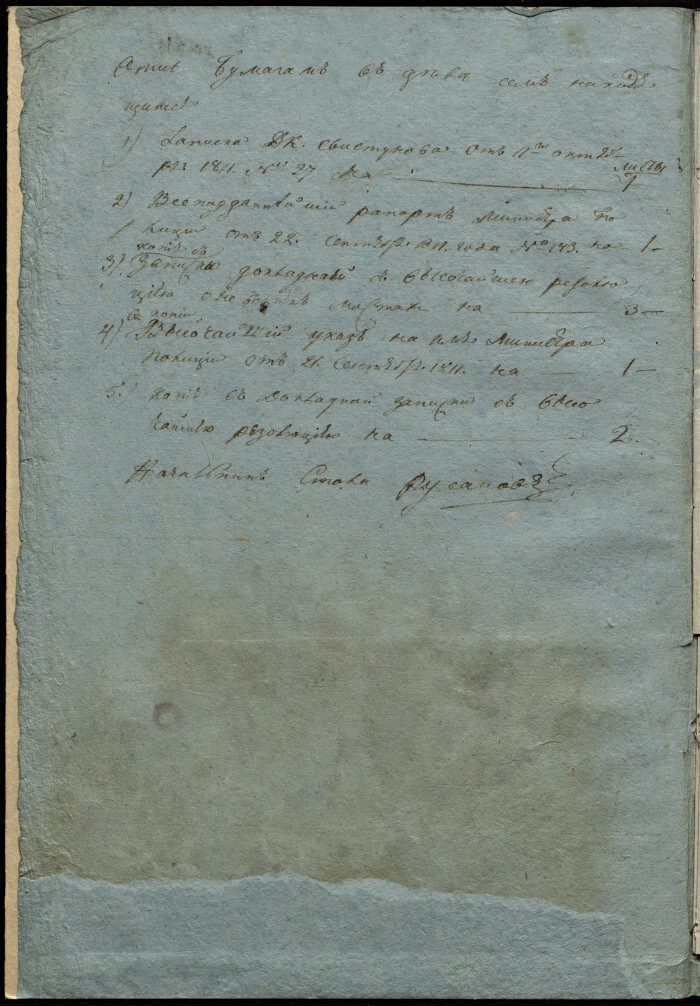 Опись бумагамъ въ дѣлѣ семъ находя
щимся
1) Записка Свистунова отъ 11го октяб
ря 1811. № 27 на листы
7
2) Всеподданнѣйшій рапортъ Министра По
лиціи отъ 22. Сентябр. 1811. года № 193. на 1 —
копія съ
3) Записки докладной съ высочайшею резолю
ціею на 3 —
съ копіи
4) Высочайшій указъ на имя Министра
Полиціи отъ 21. Сентябр. 1811. на 1 —
5) Копія съ докладной записки съ высо
чайшею резолюціею на 2.
Начальникъ Стола Русановъ